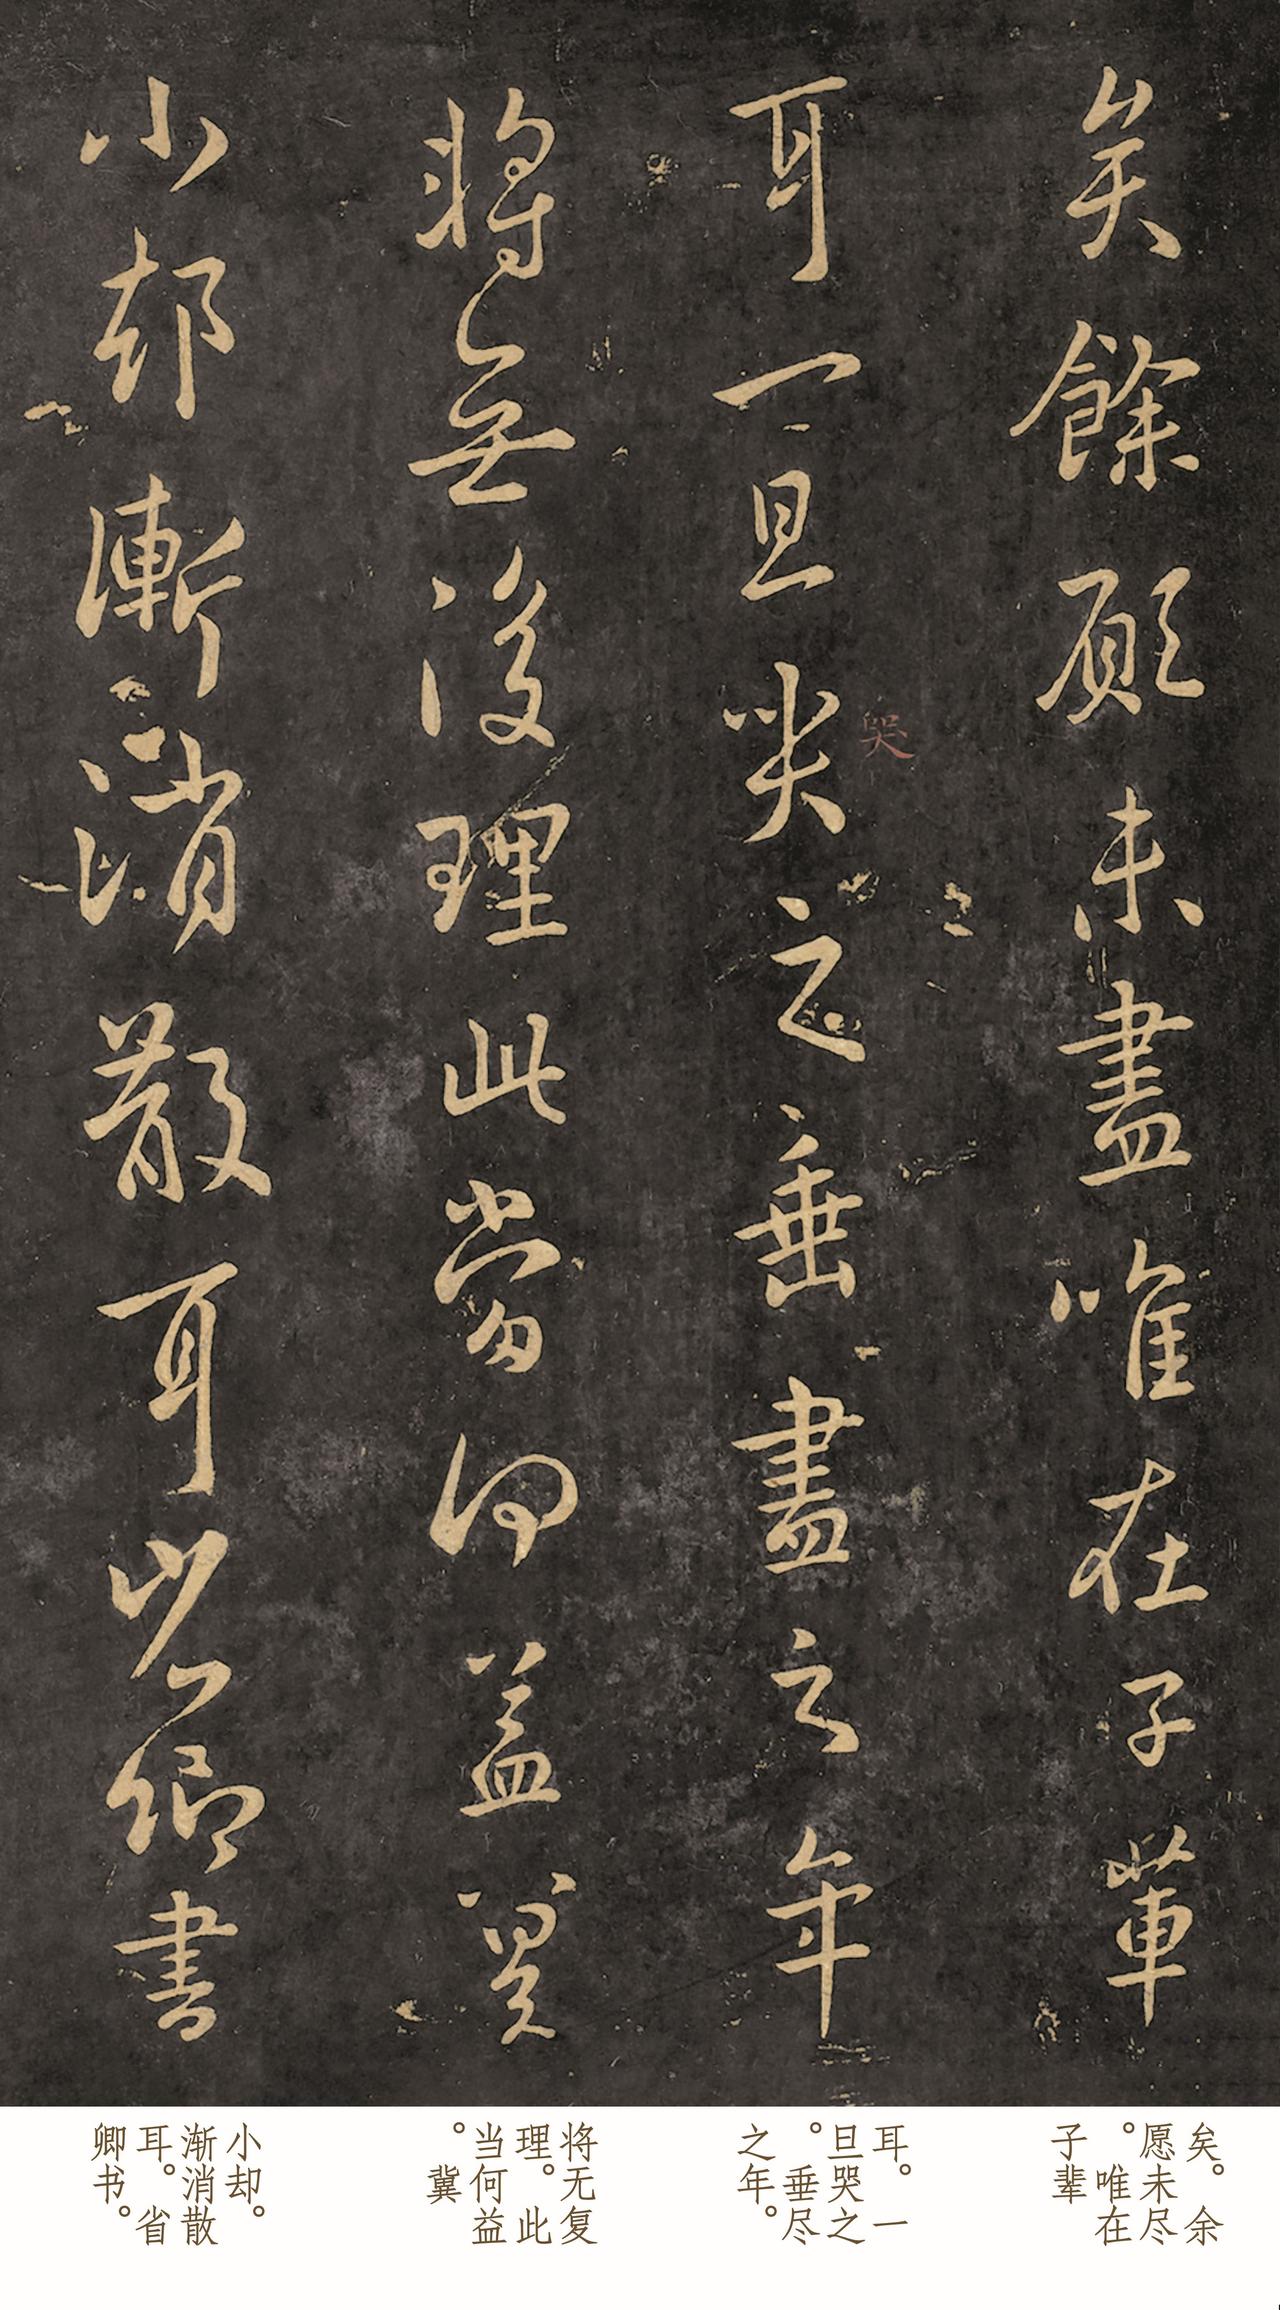 矣餘願未盡唯在子輩
耳一旦哭之垂盡之年
哭
將無復理此當何益冀
小却漸消散耳省卿書
矣。余
愿未尽
。唯在
子辈
耳。一
旦哭之
。垂尽
之年。
将无复
理。此
当何益
。冀
小却。
渐消散
耳。省
卿书。